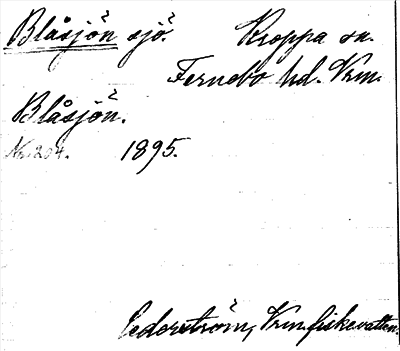 Blåsjön sjö. Kroppa sn.
Fernebo hd. Vrm.
Blåsjön.
Nr 204. 1895.
Cederström, Vrm. fiskevatten.